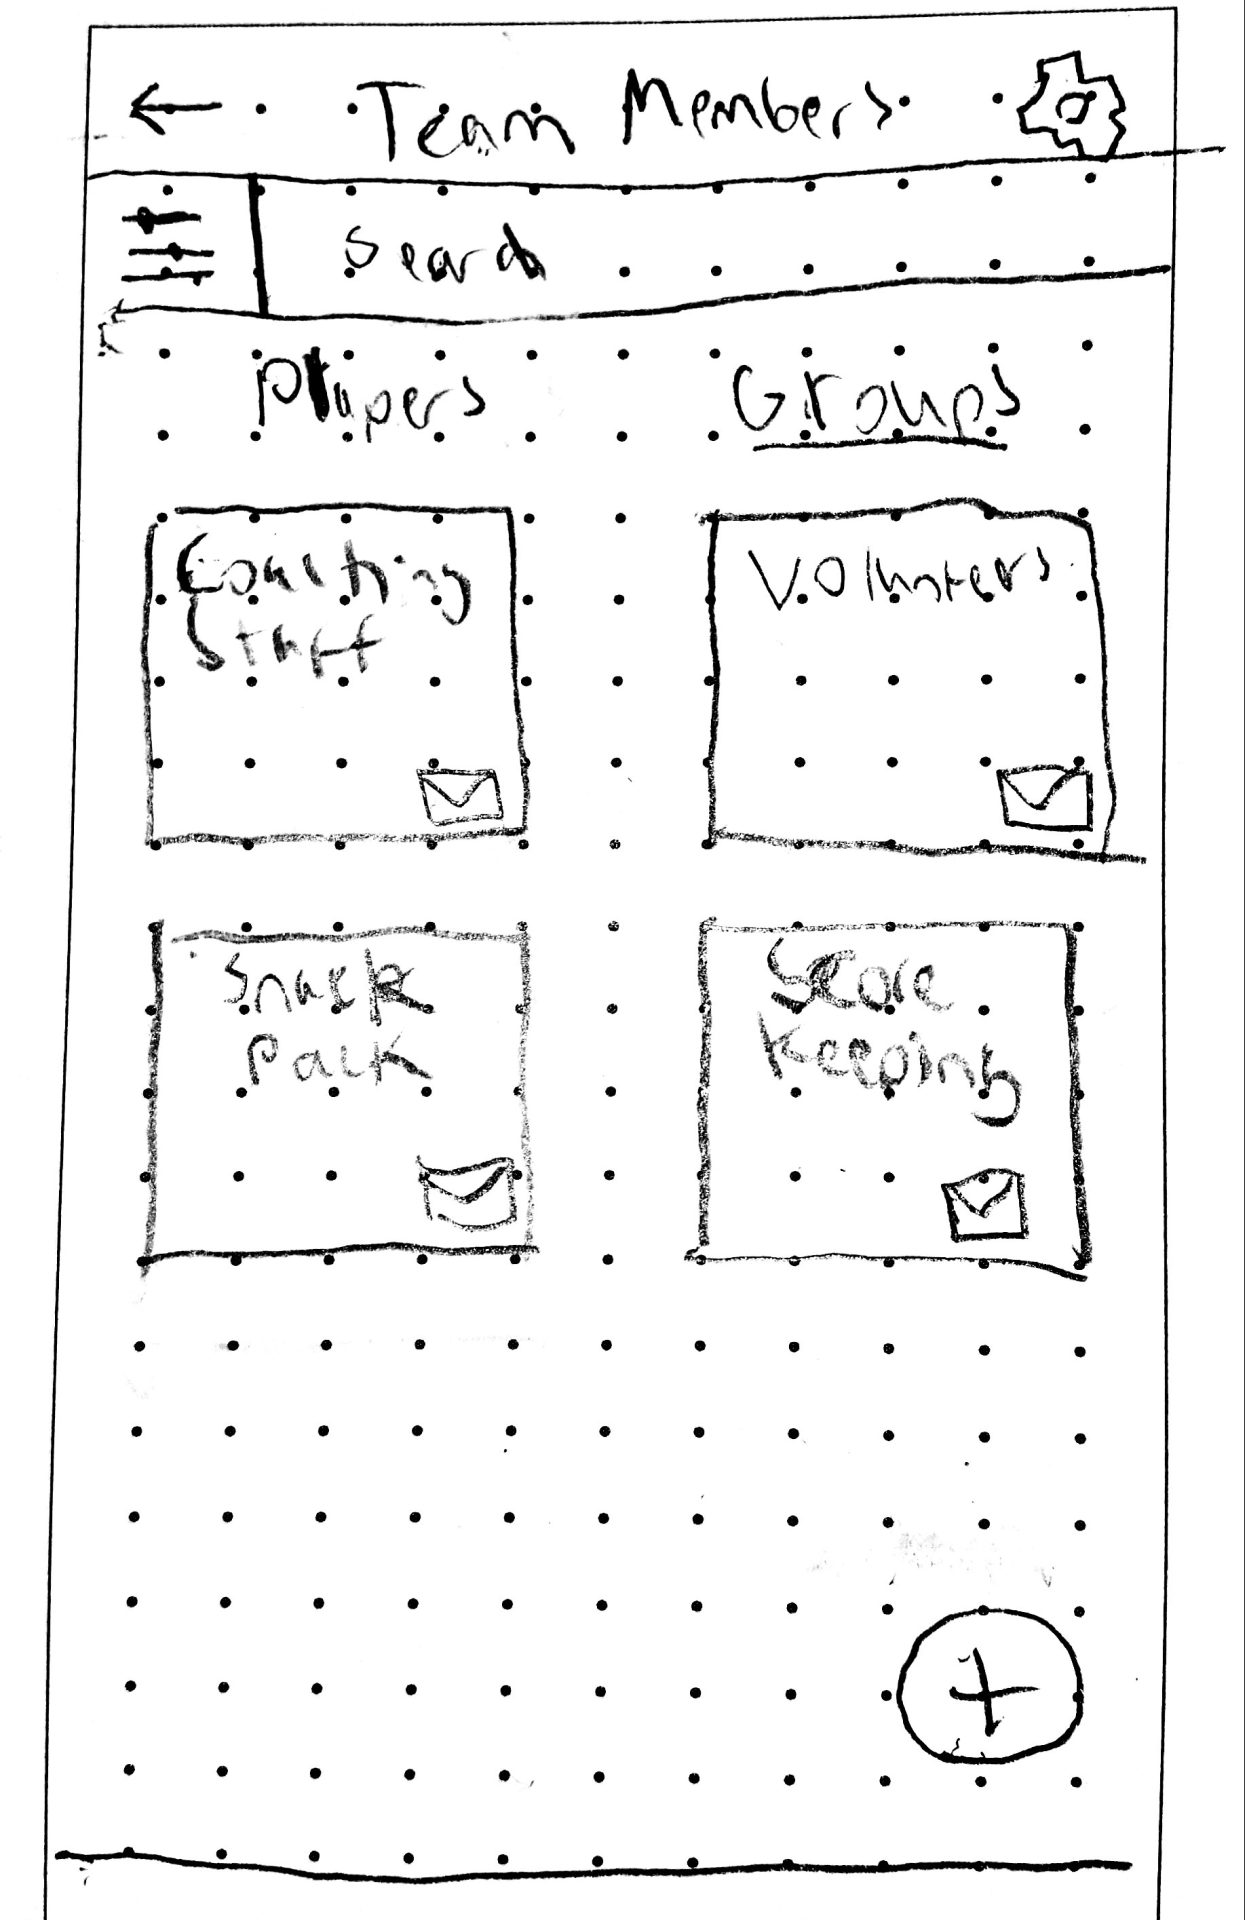 Team Members
Search
Players
Groups
Coaching
Staff
Volunteers
Snack
Pack
Score
Keeping